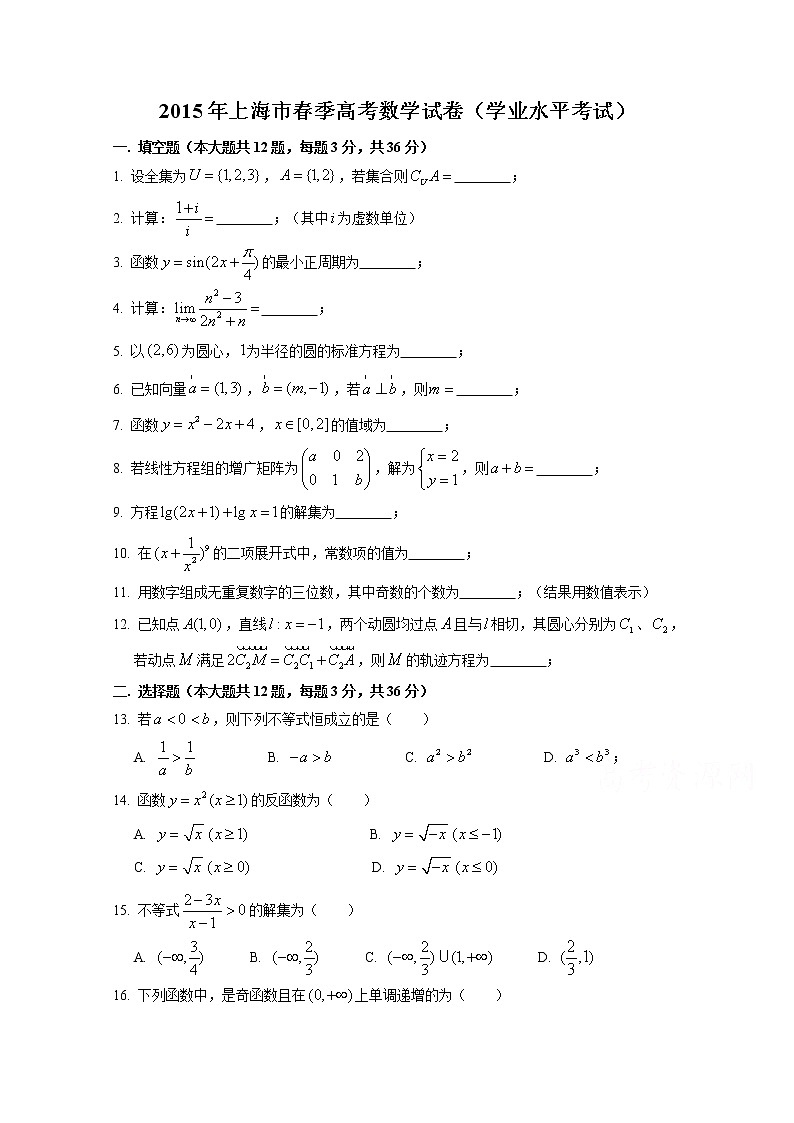 2015年上海市春季高考数学试卷（学业水平考试）
一. 填空题（本大题共12题，每题3分，共36分）
1. 设全集为U = {1,2,3}，A = {1,2}，若集合则C_U A = ________；
2. 计算：(1+i)/i = ________；（其中i为虚数单位）
3. 函数y = sin(2x + π/4)的最小正周期为________；
4. 计算：lim_{n→∞} (n² − 3)/(2n² + n) = ________；
5. 以(2,6)为圆心，1为半径的圆的标准方程为________；
6. 已知向量a = (1,3)，b = (m,−1)，若a ⊥ b，则m = ________；
7. 函数y = x² − 2x + 4，x ∈ [0,2]的值域为________；
8. 若线性方程组的增广矩阵为(a 0 2; 0 1 b)，解为{x = 2; y = 1，则a + b = ________；
9. 方程lg(2x + 1) + lg x = 1的解集为________；
10. 在(x + 1/x²)⁹的二项展开式中，常数项的值为________；
11. 用数字组成无重复数字的三位数，其中奇数的个数为________；（结果用数值表示）
12. 已知点A(1,0)，直线l : x = −1，两个动圆均过点A且与l相切，其圆心分别为C₁、C₂，
若动点M满足2C₂M = C₂C₁ + C₂A，则M的轨迹方程为________；
二. 选择题（本大题共12题，每题3分，共36分）
13. 若a < 0 < b，则下列不等式恒成立的是（ ）
A. 1/a > 1/b B. −a > b C. a² > b² D. a³ < b³；
14. 函数y = x² (x ≥ 1)的反函数为（ ）
A. y = √x (x ≥ 1) B. y = √−x (x ≤ −1)
C. y = √x (x ≥ 0) D. y = √−x (x ≤ 0)
15. 不等式(2 − 3x)/(x − 1) > 0的解集为（ ）
A. (−∞, 3/4) B. (−∞, 2/3) C. (−∞, 2/3) ∪ (1, +∞) D. (2/3, 1)
16. 下列函数中，是奇函数且在(0, +∞)上单调递增的为（ ）